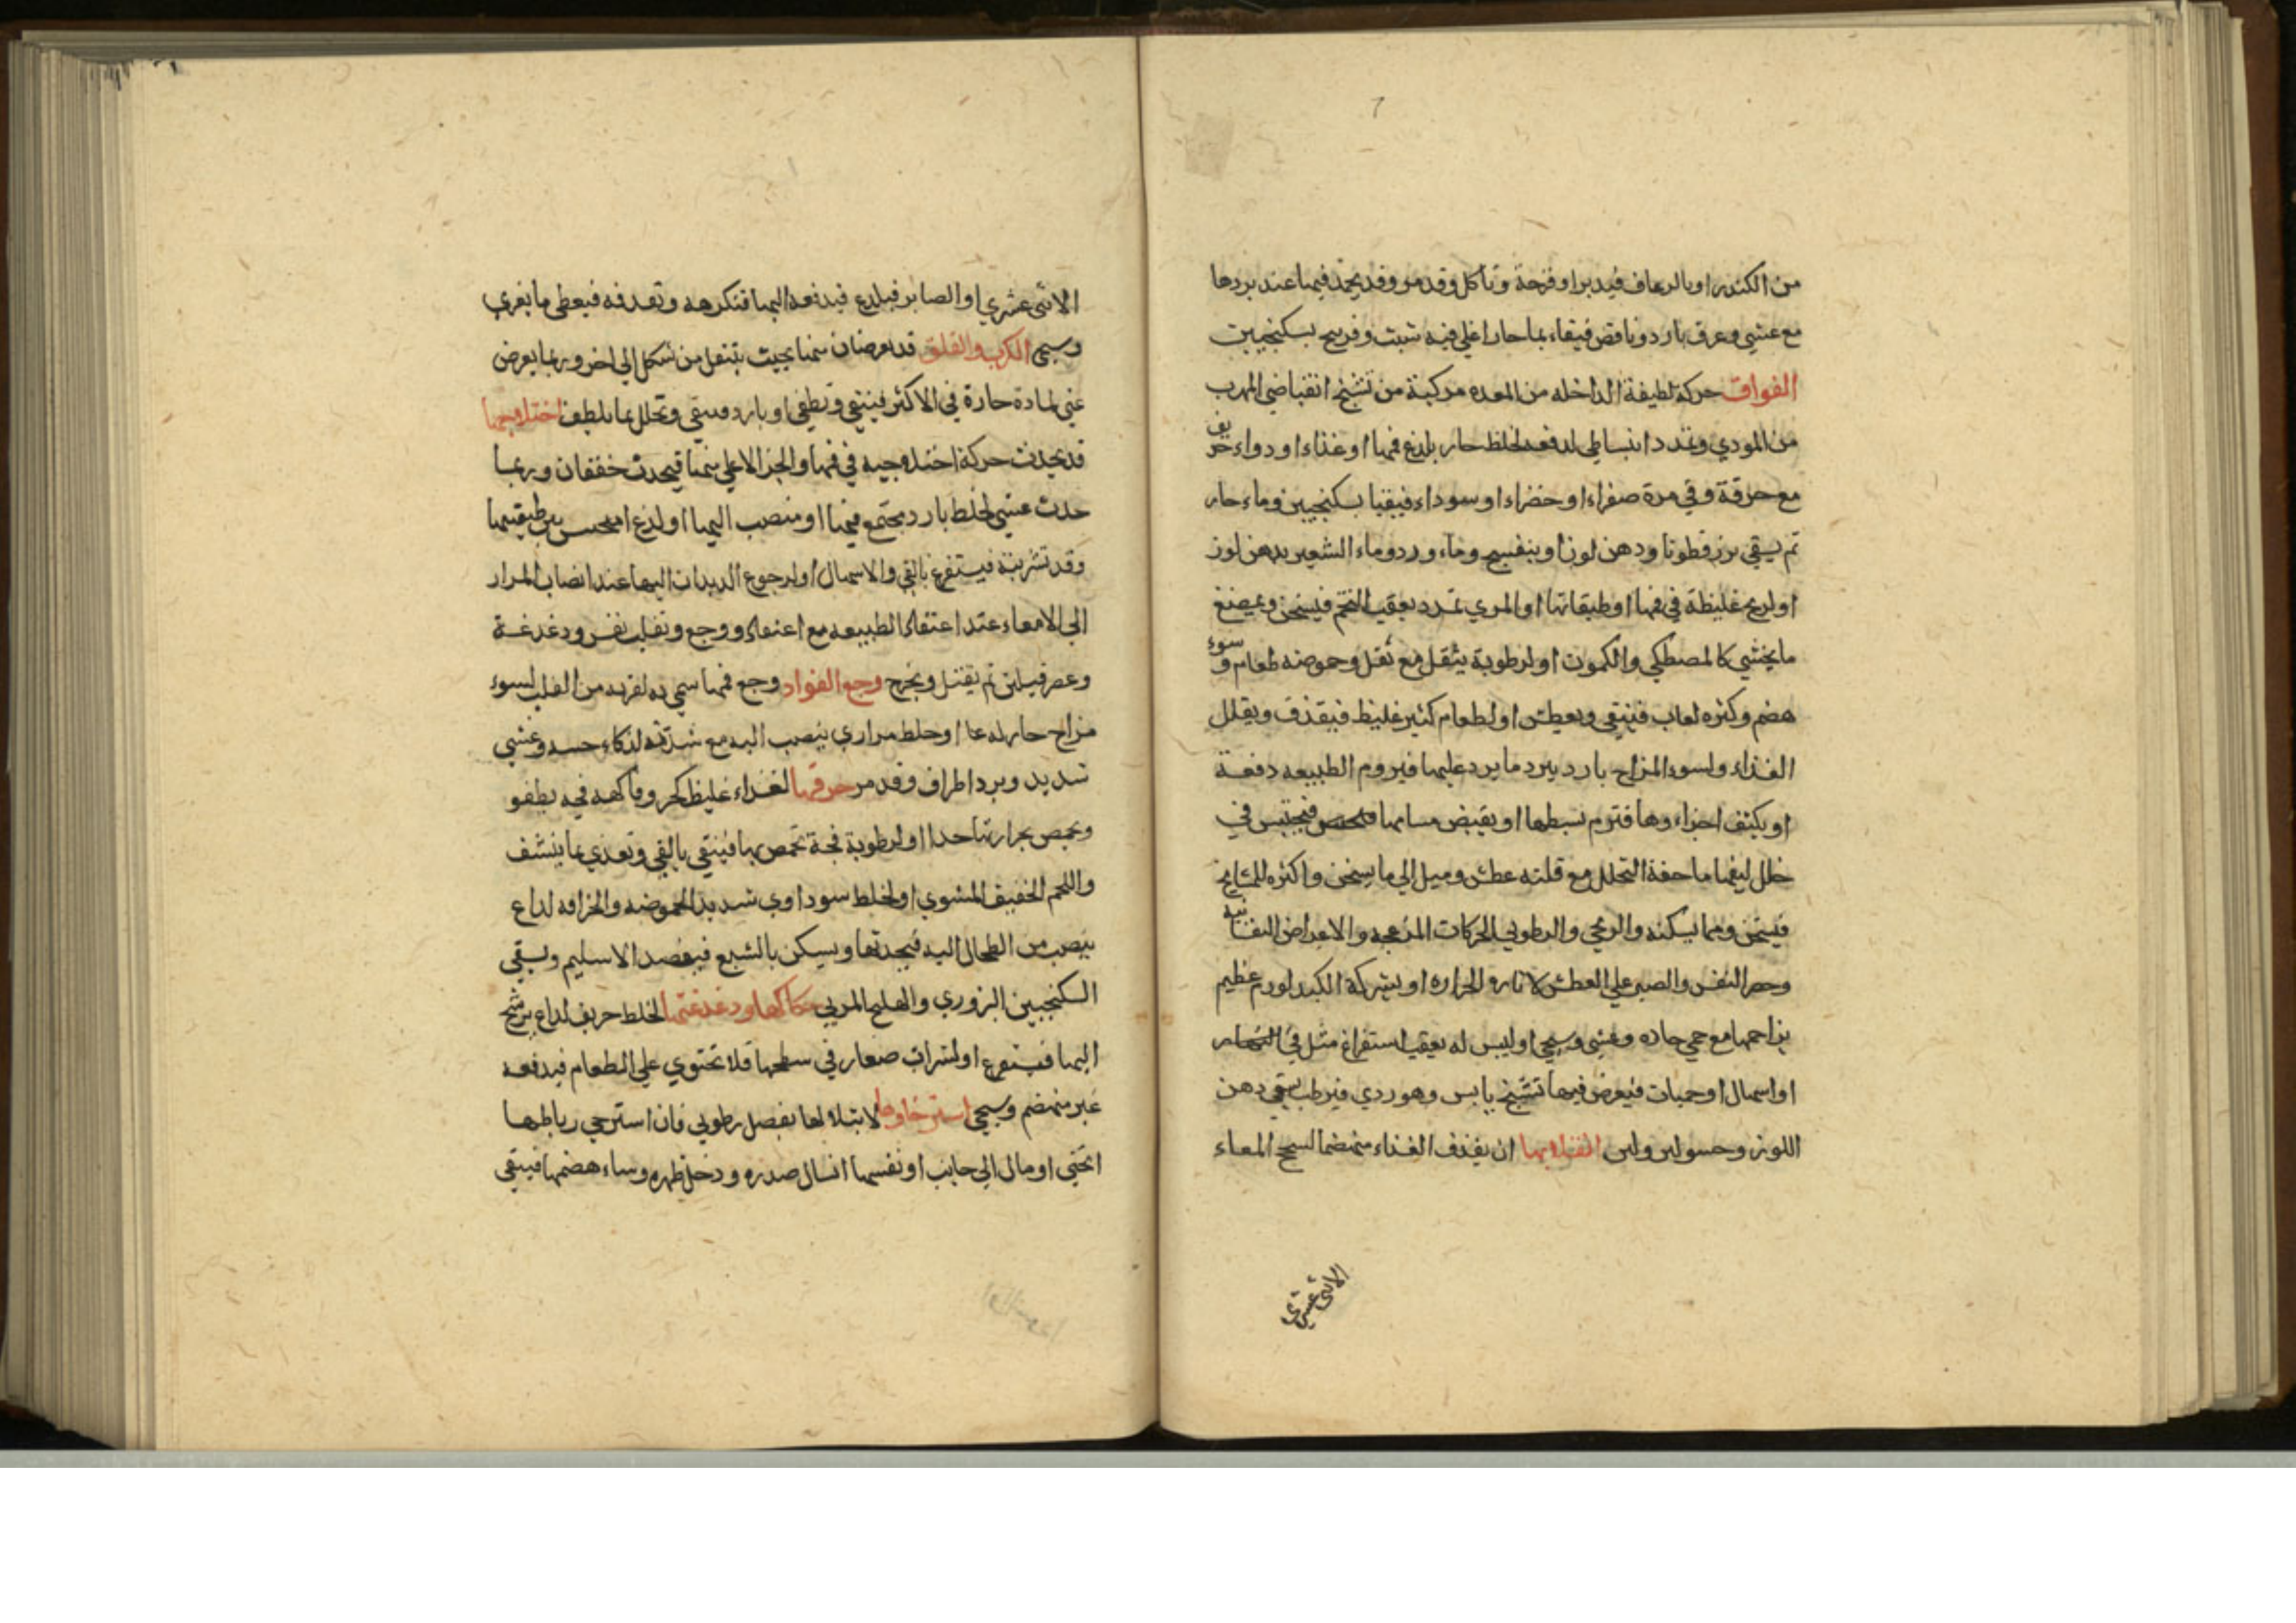 من الكندر او بالرعاف فيدبر او قرحة وتاكل وقد مر وقد يجمد فيها عند بردها
مع غشي وعرق بارد ونافض فيقاء بما حار اغلي فيه شبت وفرنج بسكنجبين
الفواق حركة لطيفة الداخله من المعده مركبة من تشنج انقباضي المهرب
من الموذي وتمدد انبساطي لدفعه لخلط حار يلذع فمها او غذاء او دواء حريف
مع حرقة وقي مرة صفراء او خضراء او سوداء فيقيا بسكنجبين وماء حار
ثم يسقي بزرقطونا ودهن لوز او بنفسج وماء ورد وماء الشعير بدهن لوز
او لريح غليظة في فمها او طبقاتها او المري تمدد يعقب التخم فيسخن ويمضغ
ما يجشي كالمصطكي والكمون او لرطوبة يثقل مع ثقل وحموضه طعام وسوء
هضم وكثره لعاب فينقي ويعطش او لطعام كثير غليظ فيقذف ويقلل
الغذاء ولسوء المزاج بارد يبرد ما يرد عليها فيروم الطبيعه دفعة
او يكثف اجزاءها فتروم نسبطها او يقبض مسامها فيحتبس في
خلل ليفها ما حقة التحلل مع قلته عطش وميل الي ما يسخن واكثره للمشايخ
فيسخن ومما يسكنه والريحي والرطوبي الحركات المزعجه والاعراض النفسانيه
وحصر النفس والصبر علي العطش لاثاره الحراره او بشركة الكبد لورم عظيم
يزاحمها مع حمي حاده وغشي وسيجي اوليس له يعقب استفراغ مثل في
او اسهال او حميات فيعرض فيها تشنج يابس وهو ردي فيرطب بسقي دهن
اللوز وحسو لين ولبن انقلابها ان يقذف الغذاء منهضما لسحج المعاء
الاثني عشري
الاثني عشري او الصابر فيلدغ فيدفعه اليها فتكرهه وتقذفه فيعطي ما يغري
وسيجي الكرب والقلق قد يعرضان منها بحيث يتنقل من شكل الي اخر وربما يعرض
غثي لمادة حارة في الاكثر فينقي وتطفي او بارد فينقي وتحلل بما يلطف اختلاجها
قد يحدث حركة اختلاجيه في فمها والجز الاعلي منها فيحدث خفقان وربما
حدث غشي لخلط بارد مجتمع فيها او منصب اليها او لذع احتبس بين طبقتيها
وقد تشربته فيستفرغ بالقي والاسهال او لرجوع الديدان اليها عند انصباب المرار
الي الامعاء عند اعتقال الطبيعه مع اعتقال ووجع وتقلب نفس ودغدغة
وعصر فيلين ثم يقتل ويخرج وجع الفواد وجع فمها سمي به لقربه من القلب لسوء
مزاج حار لذعا او خلط مراري ينصب اليه مع شدته لذكاء حسه وغشي
شديد وبرد اطراف وقد مر حرقتها لغذاء غليظ كحر وفاكهه فجه يطفو
ويحمص بحرارتها حدا او لرطوبة فجة تحمص بها فينقي بالقي وتغذي بما ينشف
واللحم الخفيف المشوي او لخلط سوداوي شديد الحموضه والحرافه لداع
ينصب من الطحال اليه فيجدتها ويسكن بالشبع فيفصد الاسليم ويسقي
السكنجبين البزوري والهليلج المربي حكاكها ودغدغتها لخلط حريف لداع يرشح
اليها فيستفرغ او لبثرات صغار في سطحها فلا تحتوي علي الطعام فيدفعه
غير منهضم وسيجي استرخاوها لابتلالها بفضل رطوبي فان استرخي رباطها
انحني او مال الي جانب او نفسها انسال صدره ودخل ظهره وساء هضمها فينقي